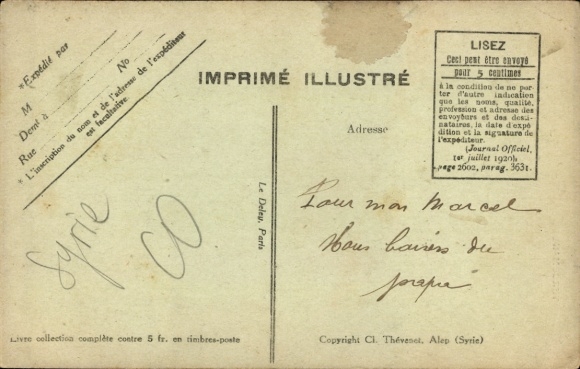 *Expédié par
M
No
Demt à
Rue
* L'inscription du nom et de l'adresse de l'expéditeur
est facultative.
IMPRIMÉ ILLUSTRÉ
LISEZ
Ceci peut être envoyé
pour 5 centimes
à la condition de ne por-
ter d'autre indication
que les noms, qualité,
profession et adresse des
envoyeurs et des desti-
nataires, la date d'expé-
dition et la signature de
l'expéditeur.
(Journal Officiel,
1er juillet 1920),
page 2602, parag. 3631.
Adresse
Syrie
Le Deley, Paris
Pour mon Marcel
du
Livre collection complète contre 5 fr. en timbres-poste
Copyright Cl. Thévenet, Alep (Syrie)